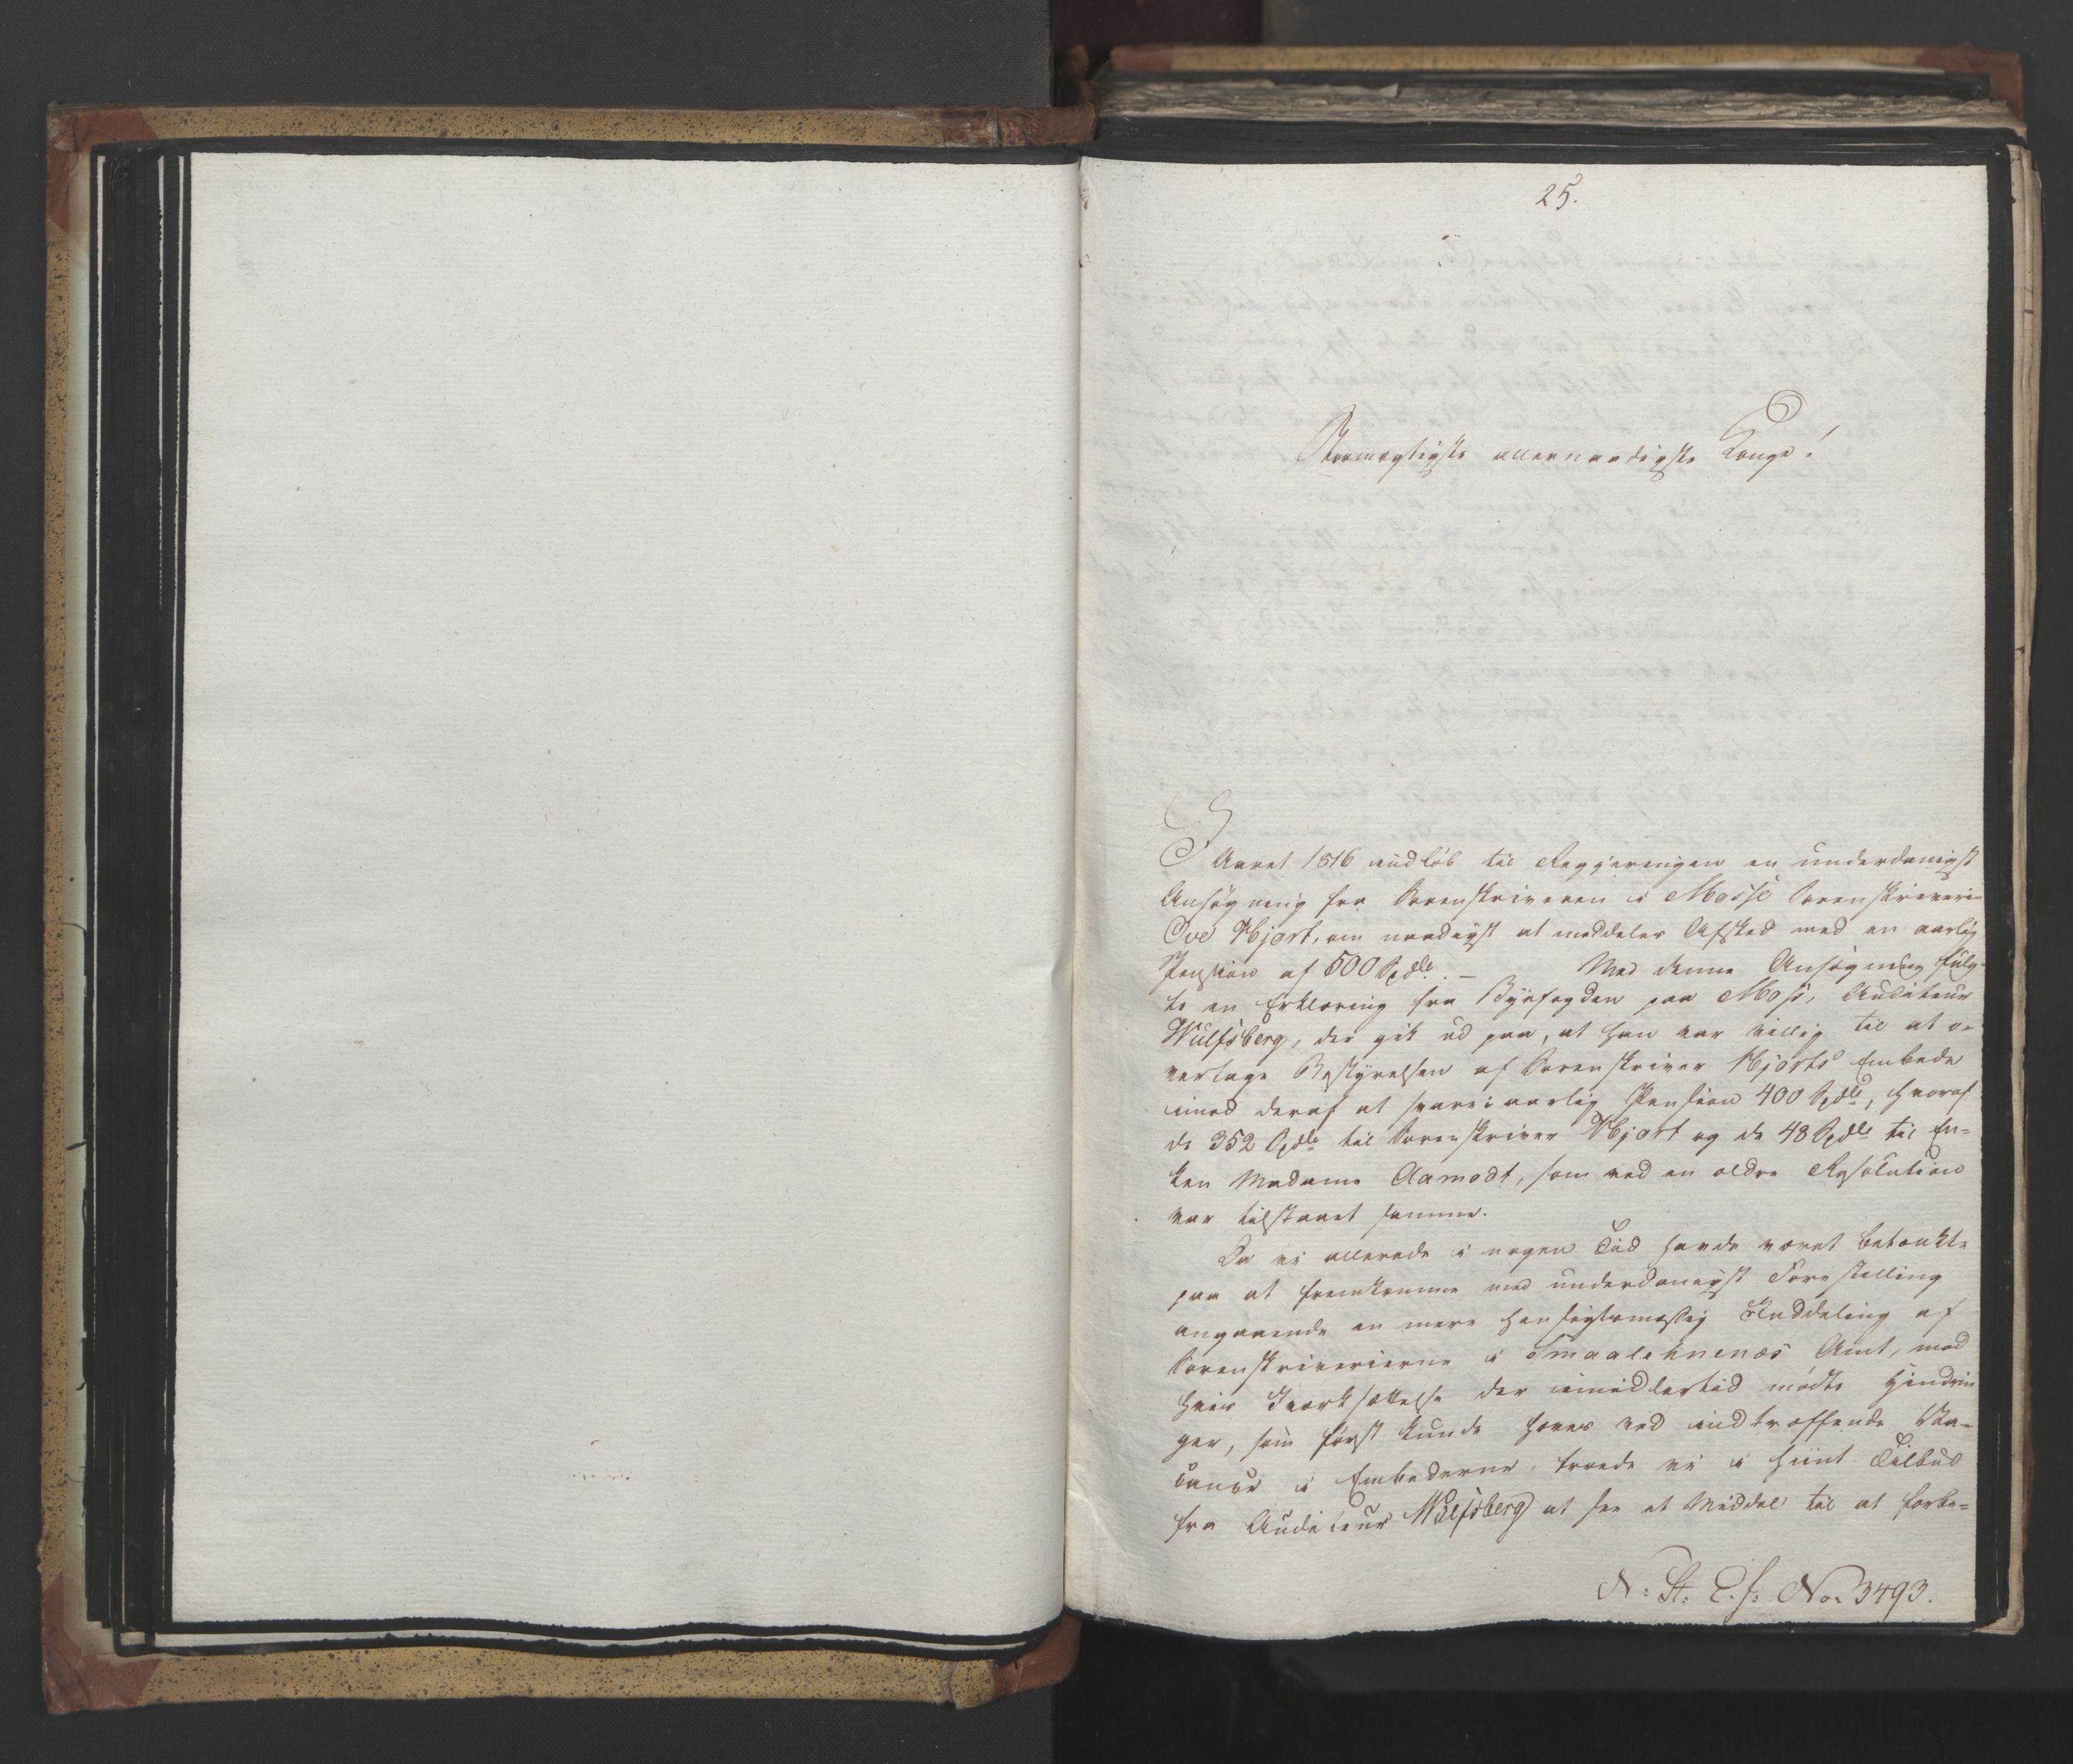 25.
Stormægtigste allernaadigste Konge!
I Aaret 1816 indløb til Regjeringen en underdanigst
Ansøgning fra Sorenskriveren i Mosse Sorenskriveri
Ove Hjort, om naadigst at meddeles Afsked med en aarlig
Pension af 500 Spdlr. – Med denne Ansøgning fulg-
te en Erklæring fra Byefogden paa Moss, Auditeur
Wulfsberg, der gik ud paa, at han var villig til at o-
vertage Bestyrelsen af Sorenskriver Hjorts Embede
imod deraf at svare i aarlig Pension 400 Spdlr, hvoraf
de 352 Spdlr til Sorenskriver Hjort og de 48 Spdlr til En-
ken Madame Aamodt, som ved en ældre Resolution
var tilstaaet samme.
Da vi allerede i nogen Tid havde været betænkte
paa at fremkomme med underdanigst Forestilling
angaaende en mere hensigtsmæssig Inddeling af
Sorenskriverierne i Smaalehnenes Amt, mod
hvis Iværksættelse der imidlertid mødte Hindrin
ger, som først kunde hæves ved indtræffende Va-
cance i Embederne, troede vi i hiint Tilbud
fra Auditeur Wulfsberg at see et Middel til at forbe-
N: St: E. f: No: 3493.